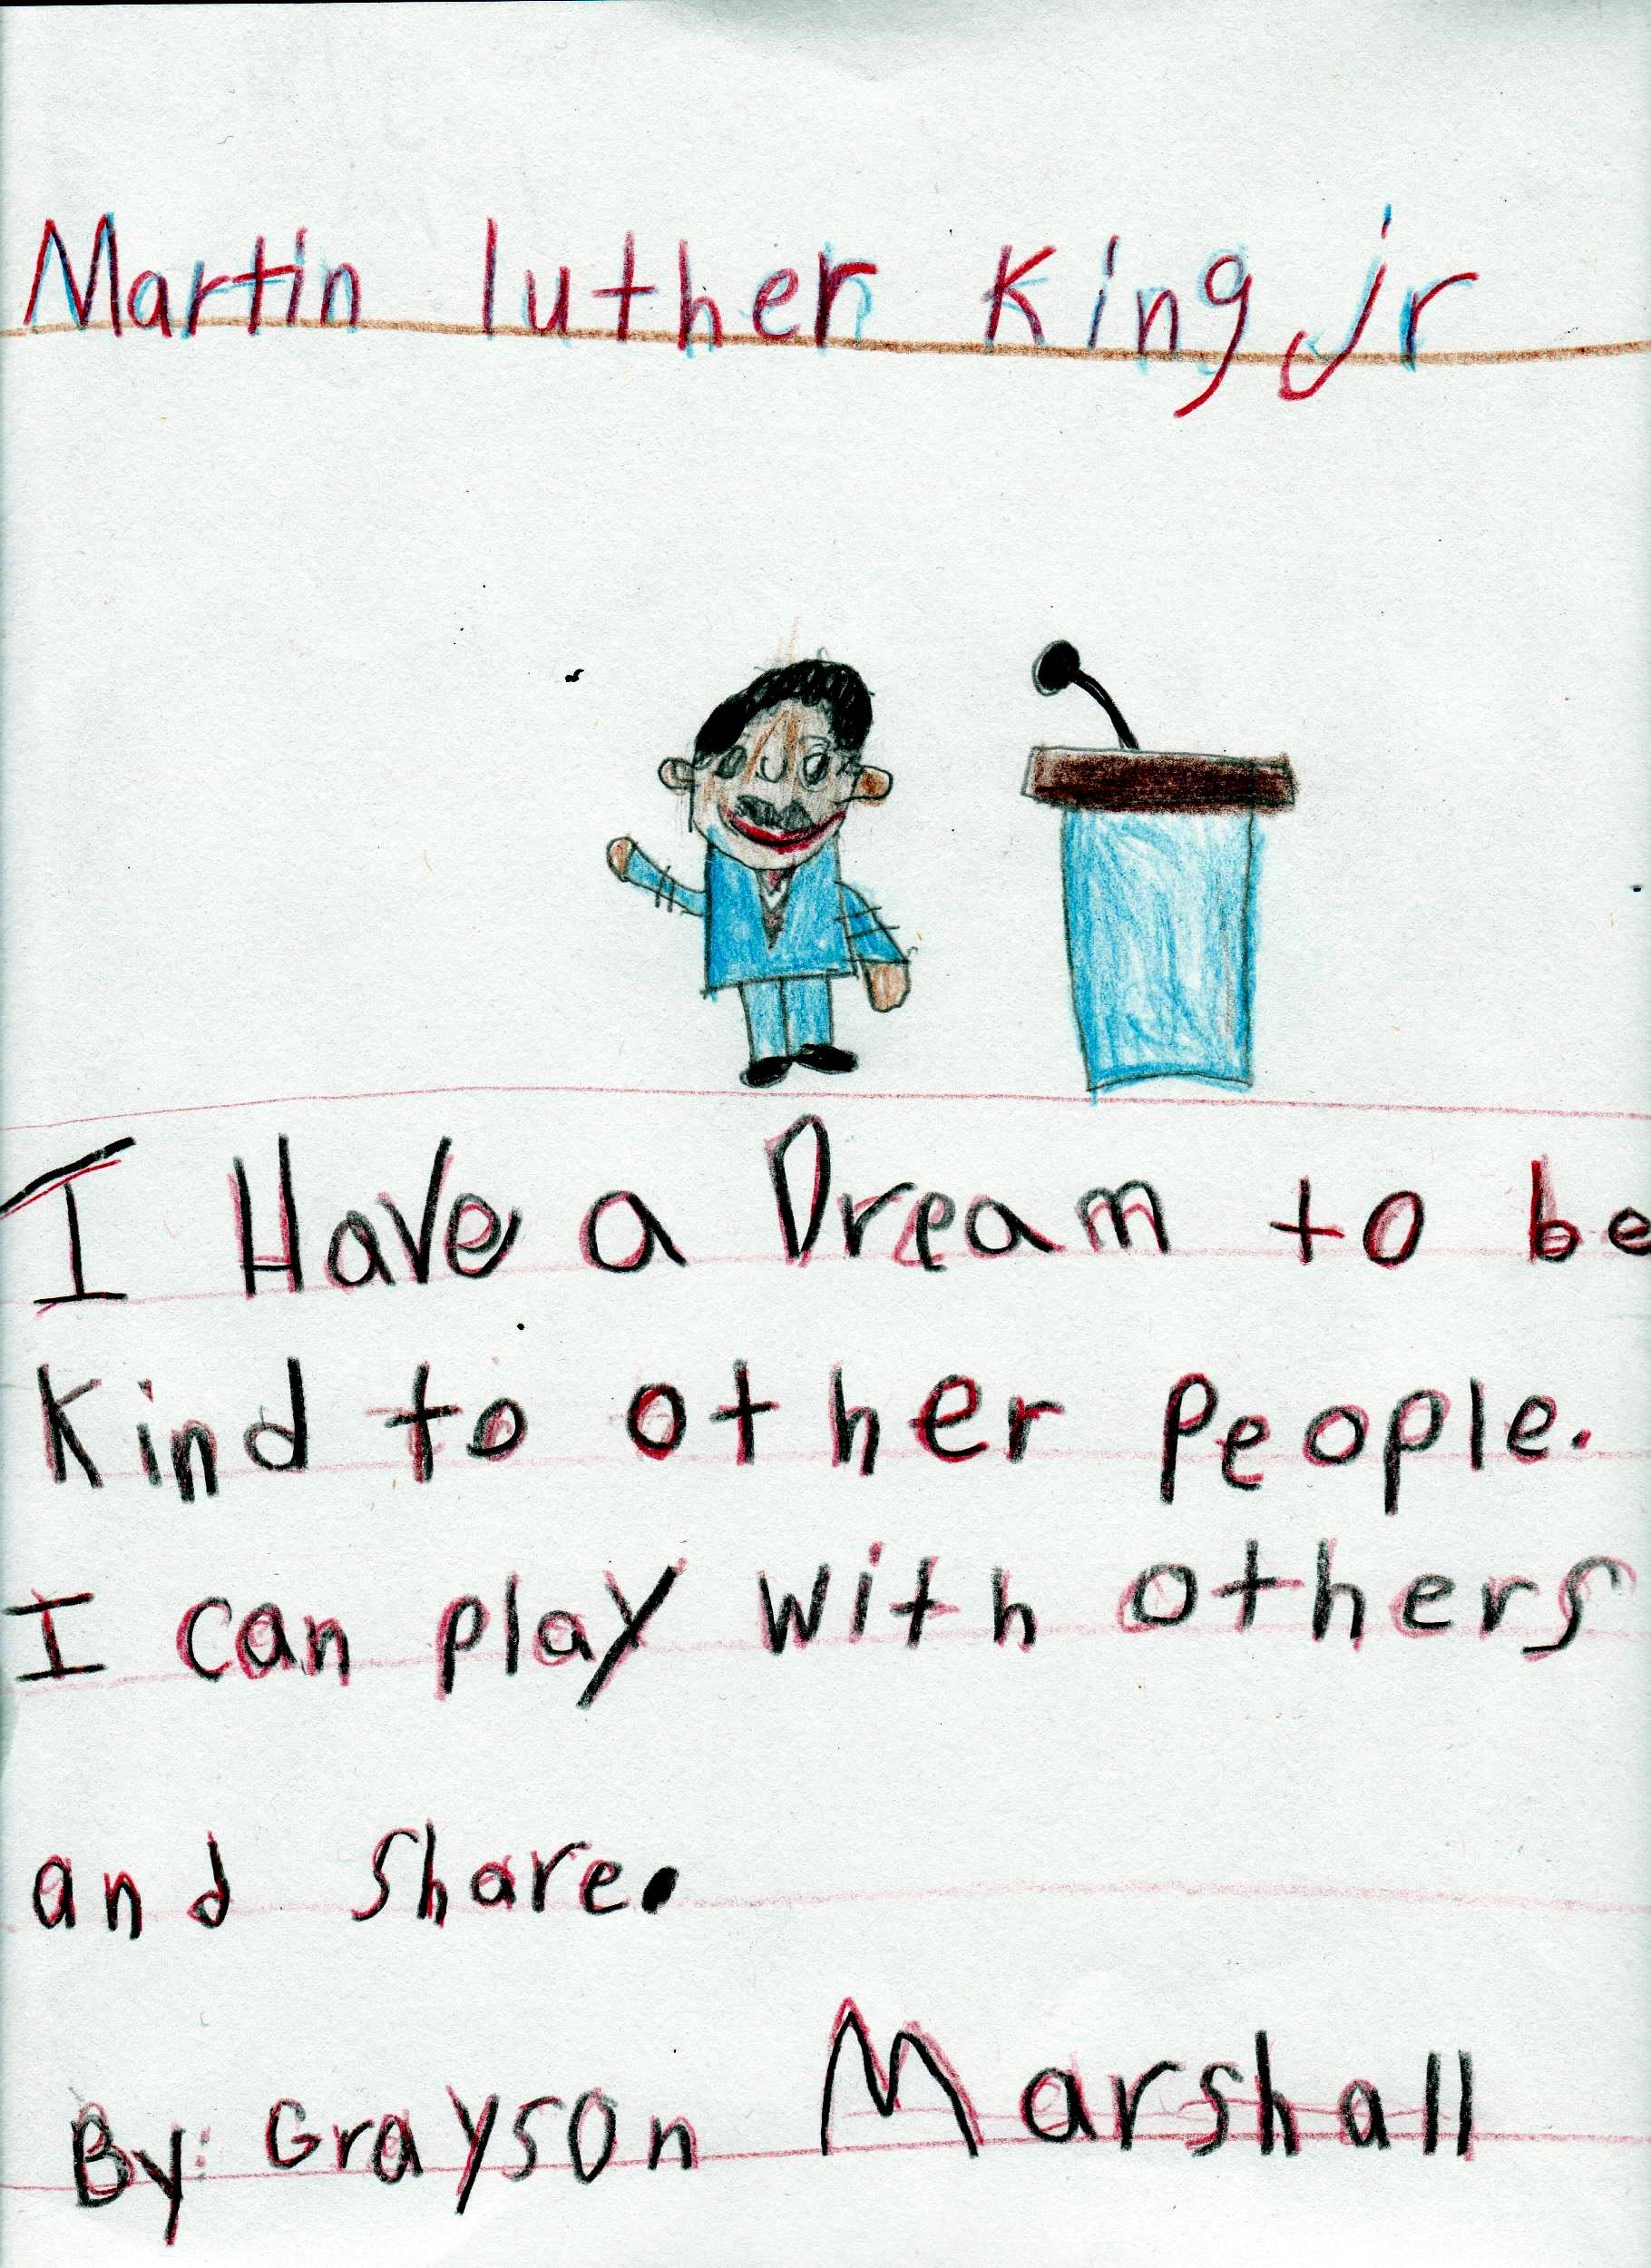 Martin luther King jr
I Have a Dream to be
Kind to other People.
I can play with others
and share.
By: Grayson Marshall